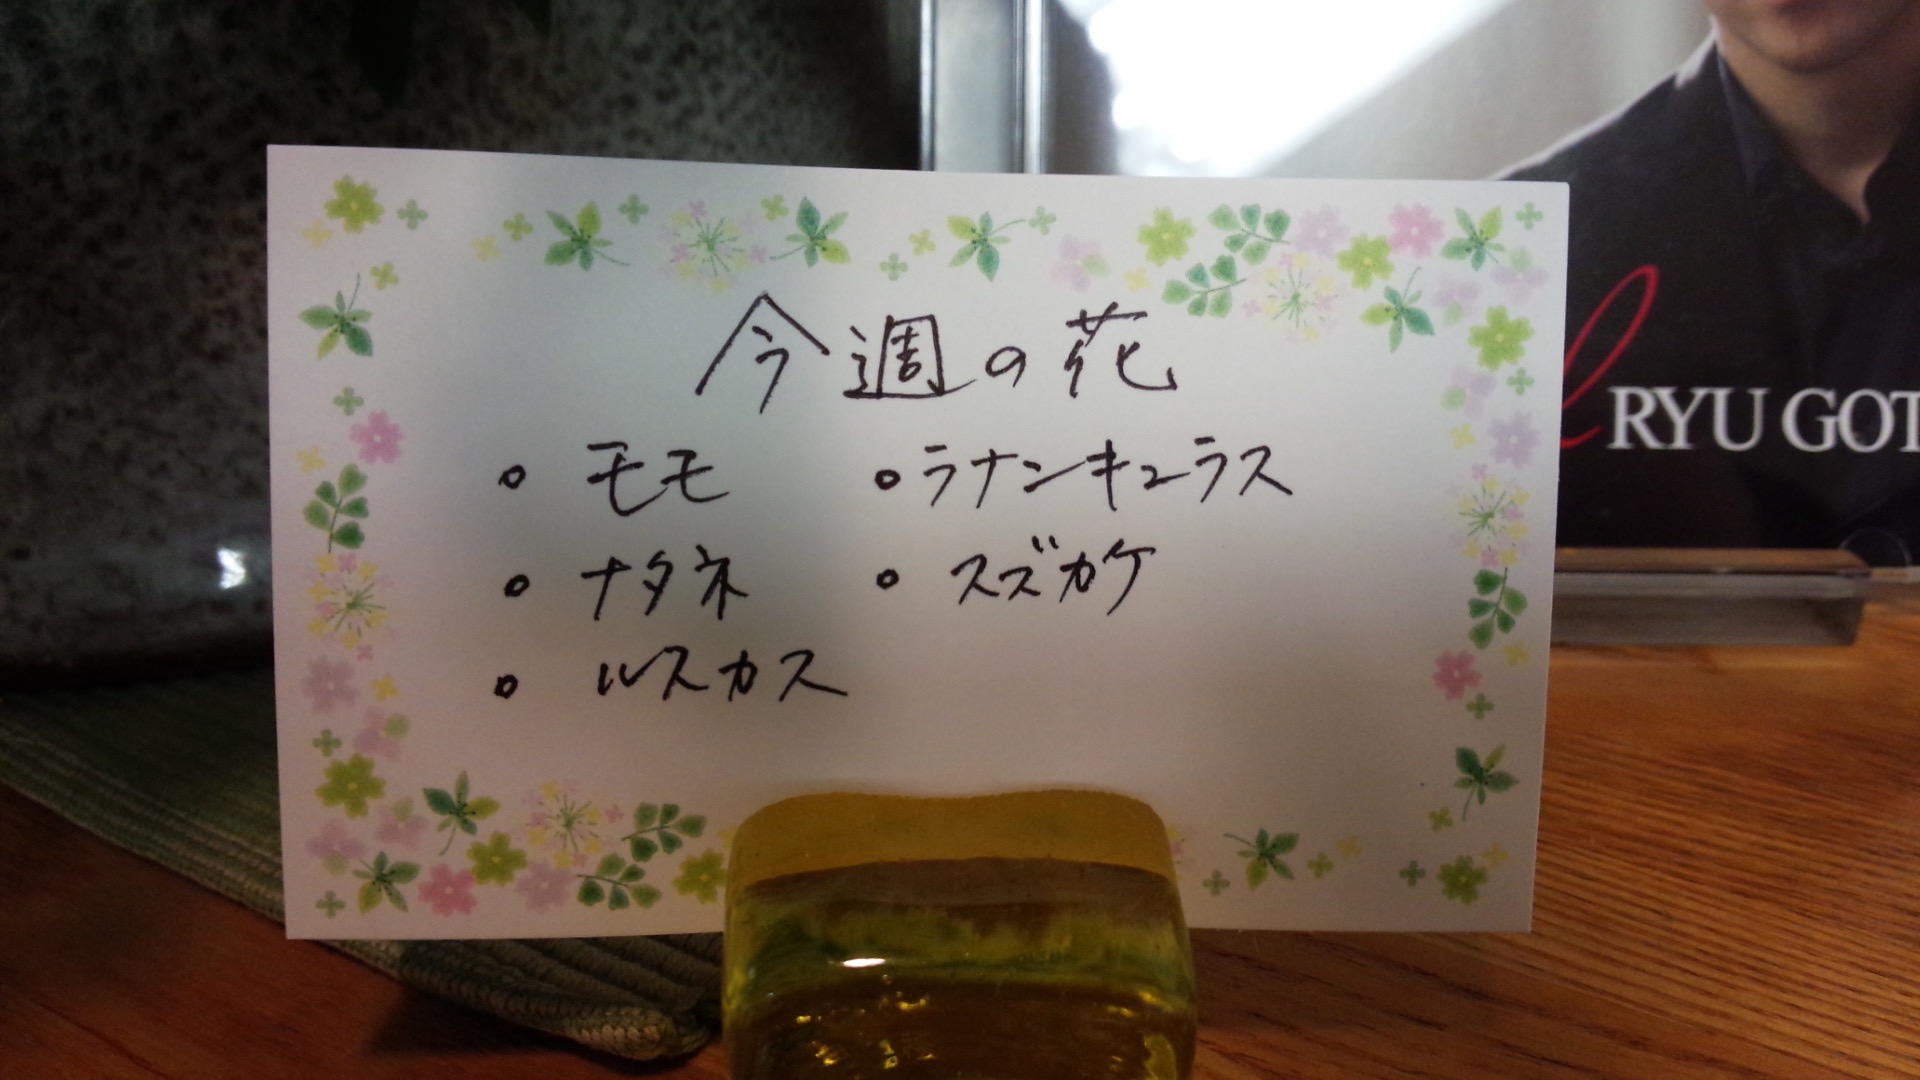 今週の花
• モモ
• ラナンキュラス
• ナタネ
• スズカケ
• ルスカス
RYU GOT